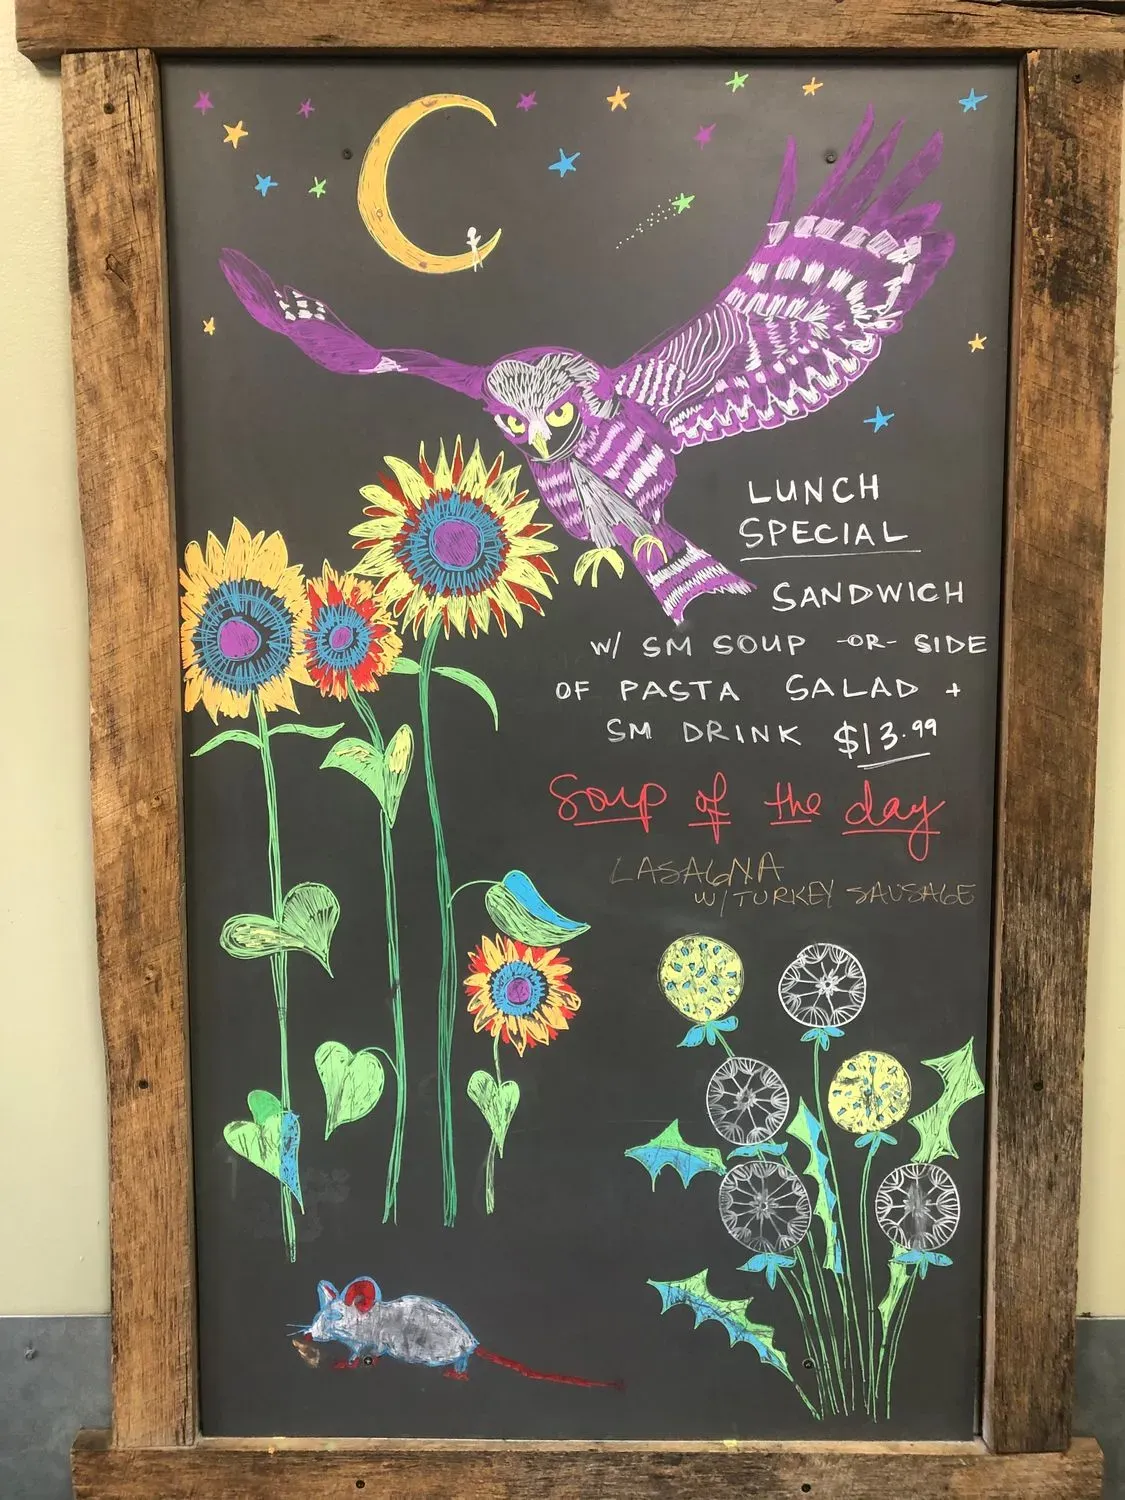 LUNCH
SPECIAL
SANDWICH
W/ SM SOUP -OR- SIDE
OF PASTA SALAD +
SM DRINK $13.99
Soup of the day
LASAGNA
W/TURKEY SAUSAGE